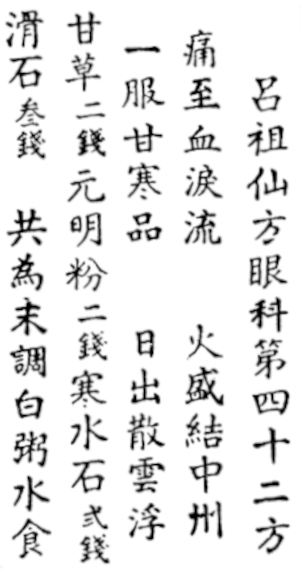 呂祖仙方眼科第四十二方
痛至血淚流　火盛結中州
一服甘寒品　日出散雲浮
甘草二錢元明粉二錢寒水石弍錢
滑石叁錢　共為末調白粥水食